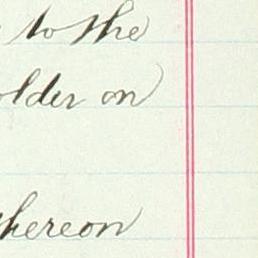 to the
older on
thereon